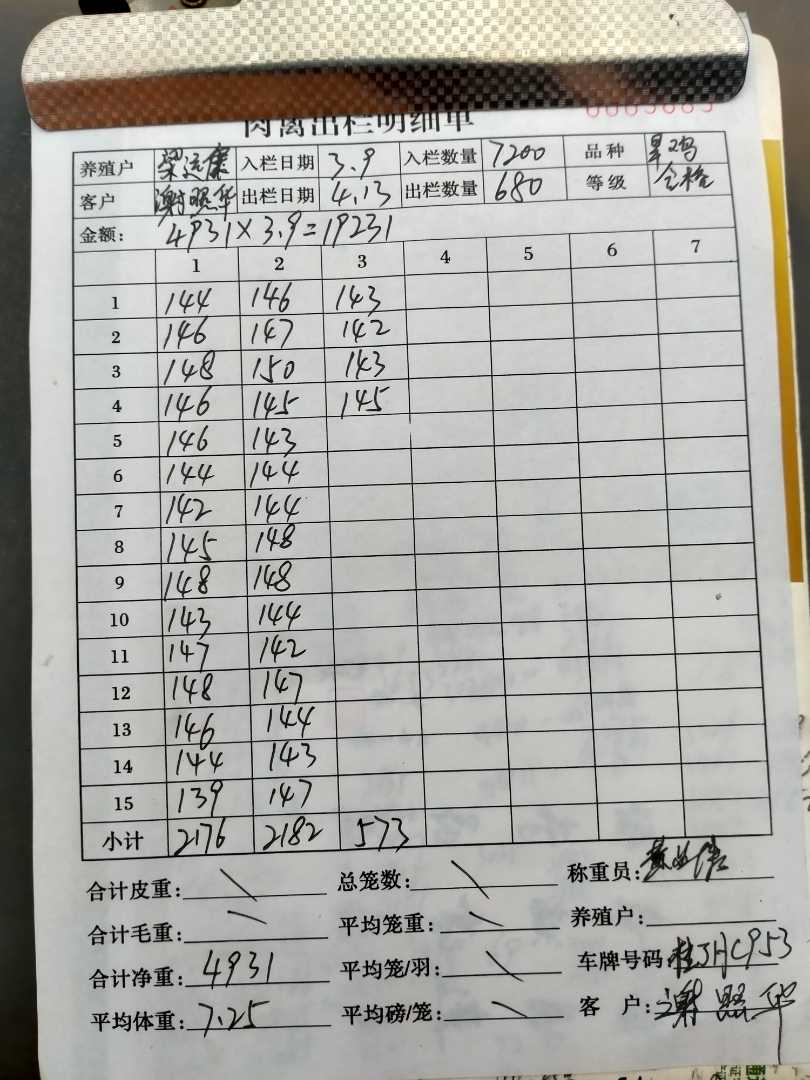 肉禽出栏明细单 0003685
养殖户 梁运康 入栏日期 3.9 入栏数量 7200 品种 旱鸡
客户 谢照华 出栏日期 4.13 出栏数量 680 等级 合格
金额: 4931×3.9=19231
1 2 3 4 5 6 7
1 144 146 143
2 146 147 142
3 148 150 143
4 146 145 145
5 146 143
6 144 144
7 142 144
8 145 148
9 148 148
10 143 144
11 147 142
12 148 147
13 146 144
14 144 143
15 139 147
小计 2176 2182 573
合计皮重: \ 总笼数: \ 称重员:
合计毛重: \ 平均笼重: \ 养殖户:
合计净重: 4931 平均笼/羽: \ 车牌号码 桂JHC953
平均体重: 7.25 平均磅/笼: \ 客 户: 谢照华